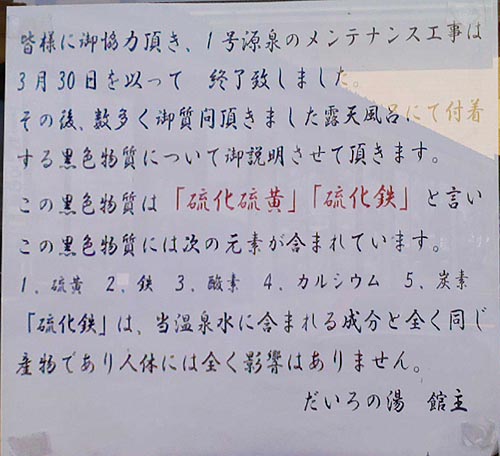 皆様に御協力頂き、１号源泉のメンテナンス工事は
３月30日を以って　終了致しました。
その後、数多く御質問頂きました露天風呂にて付着
する黒色物質について御説明させて頂きます。
この黒色物質は「硫化硫黄」「硫化鉄」と言い
この黒色物質には次の元素が含まれています。
１、硫黄　２、鉄　３、酸素　４、カルシウム　５、炭素
「硫化鉄」は、当温泉水に含まれる成分と全く同じ
産物であり人体には全く影響はありません。
だいろの湯　館主